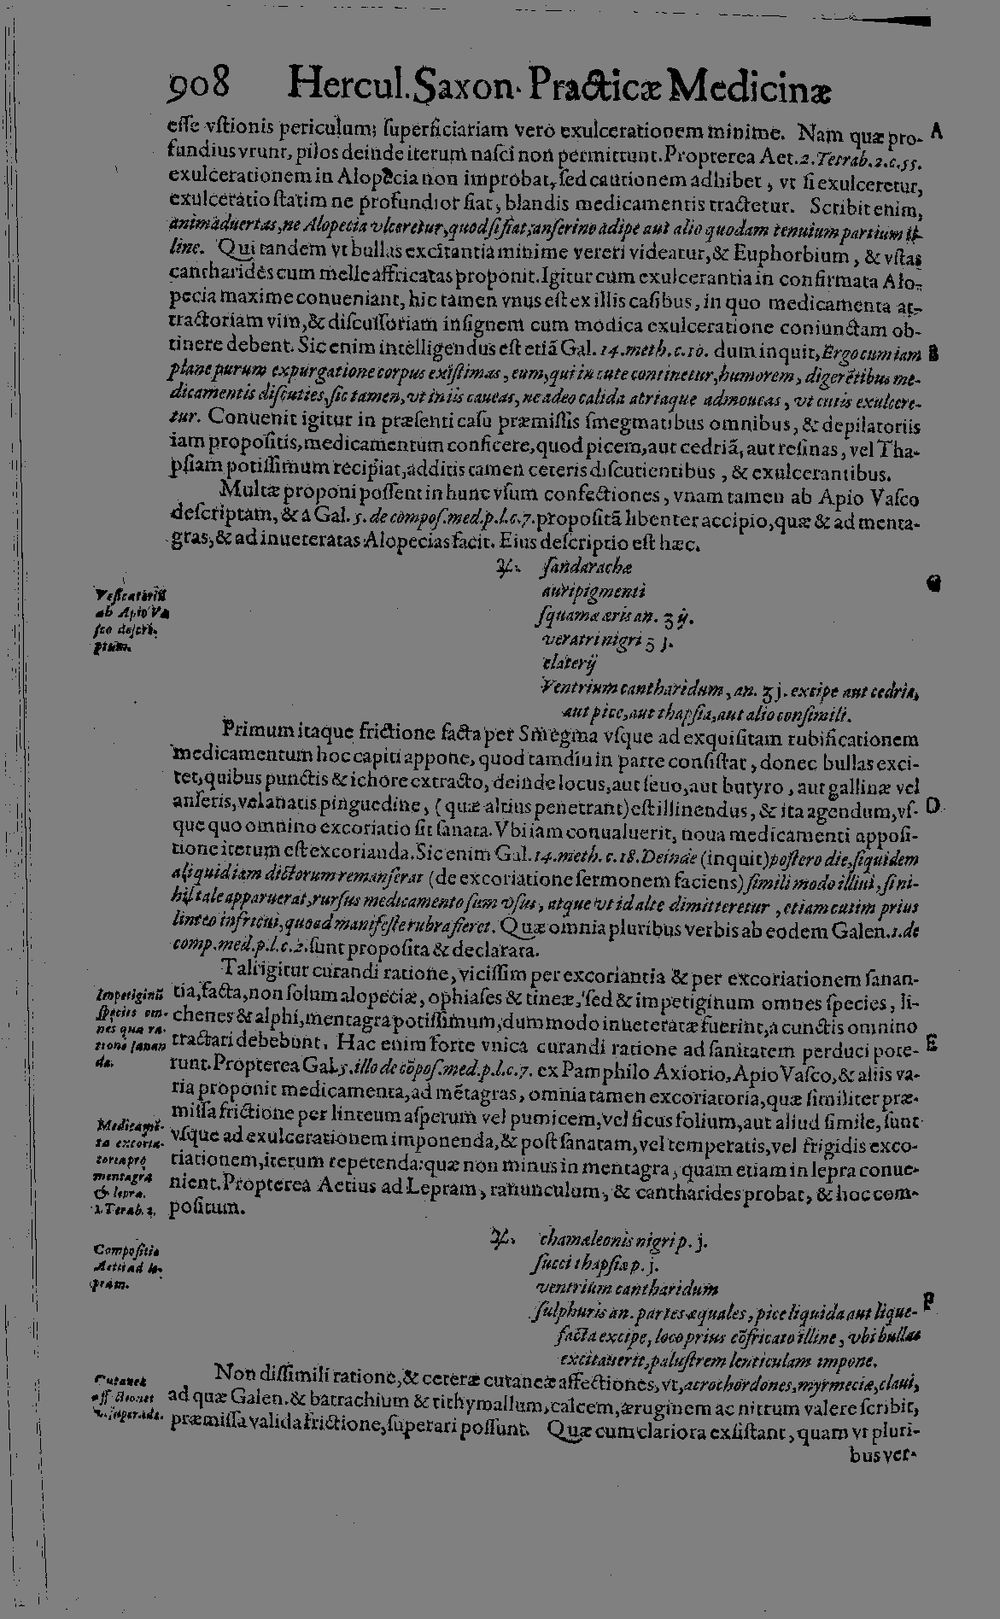 908 Hercul. Saxon. Practicæ Medicinæ
esse vstionis periculum; superficiariam vero exulcerationem minime. Nam quæ pro- A
fundius vrunt, pilos deinde iterum nasci non permittunt. Propterea Aet. 2. Tetrab. 2. c. 55.
exulcerationem in Alopecia non improbat, sed cautionem adhibet, vt si exulceretur,
exulceratio statim ne profundior fiat, blandis medicamentis tractetur. Scribit enim,
animaduertas, ne Alopecia vlceretur, quod si fiat, anserino adipe aut alio quodam tenuium partium il-
line. Qui tandem vt bullas excitantia minime vereri videatur, & Euphorbium, & vstas
cantharides cum melle affricatas proponit. Igitur cum exulcerantia in confirmata Alo-
pecia maxime conueniant, hic tamen vnus est ex illis casibus, in quo medicamenta at-
tractoriam vim, & discussoriam insignem cum modica exulceratione coniunctam ob-
tinere debent. Sic enim intelligendus est etiã Gal. 14. meth. c. 10. dum inquit, Ergo cum iam B
plane purum expurgatione corpus existimas, eum, qui in cute continetur, humorem, digerẽtibus me-
dicamentis discuties, sic tamen, vt in iis caueas, ne adeo calida atriaque admoueas, vt cutis exulcere-
tur. Conuenit igitur in præsenti casu præmissis smegmatibus omnibus, & depilatoriis
iam propositis, medicamentum conficere, quod picem, aut cedriã, aut resinas, vel Tha-
psiam potissimum recipiat, additis tamen ceteris discutientibus, & exulcerantibus.
Multæ proponi possent in hunc vsum confectiones, vnam tamen ab Apio Vasco
descriptam, & a Gal. 5. de compos. med. p. l. c. 7. propositã libenter accipio, quæ & ad menta-
gras, & ad inueteratas Alopecias facit. Eius descriptio est hæc.
♃. sandarachæ
auripigmenti
squamæ æris an. ʒ ij.
veratri nigri ʒ j.
elaterij
Ventrium cantharidum, an. ʒ j. excipe aut cedria,
aut pice, aut thapsia, aut alio consimili.
C
Vesicatoriũ
ab Apio Va
sco descri-
ptum.
Primum itaque frictione facta per Smegma vsque ad exquisitam rubificationem
medicamentum hoc capiti appone, quod tamdiu in parte consistat, donec bullas exci-
tet, quibus punctis & ichore extracto, deinde locus, aut seuo, aut butyro, aut gallinæ vel
anseris, vel anatis pinguedine, (quæ altius penetrant) est illinendus, & ita agendum, vs- D
que quo omnino excoriatio sit sanata. Vbi iam conualuerit, noua medicamenti apposi-
tione iterum est excorianda. Sic enim Gal. 14. meth. c. 18. Deinde (inquit) postero die, siquidem
aliquid iam dictorum remanserat (de excoriatione sermonem faciens) simili modo illini, si ni-
hil tale apparuerat, rursus medicamento sum vsus, atque vt id alte dimitteretur, etiam cutim prius
linteo infricui, quoad manifeste rubra fieret. Quæ omnia pluribus verbis ab eodem Galen. 1. de
comp. med. p. l. c. 2. sunt proposita & declarata.
Tali igitur curandi ratione, vicissim per excoriantia & per excoriationem sanan-
tia, facta, non solum alopeciæ, ophiases & tineæ, sed & impetiginum omnes species, li-
chenes & alphi, mentagra potissimum, dummodo inueteratæ fuerint, a cunctis omnino
tractari debebunt. Hac enim forte vnica curandi ratione ad sanitatem perduci pote- E
runt. Propterea Gal. 5. illo de cõpos. med. p. l. c. 7. ex Pamphilo Axiorio, Apio Vasco, & aliis va-
ria proponit medicamenta, ad mẽtagras, omnia tamen excoriatoria, quæ similiter præ-
missa frictione per linteum asperum vel pumicem, vel ficus folium, aut aliud simile, sunt
vsque ad exulcerationem imponenda, & post sanatam, vel temperatis, vel frigidis exco-
riationem, iterum repetenda: quæ non minus in mentagra, quam etiam in lepra conue-
nient. Propterea Aetius ad Lepram, ranunculum, & cantharides probat, & hoc com-
positum.
Impetiginũ
species om-
nes qua ra-
tione sanan
dæ.
Medicamẽ-
ta excoria-
toria pro
mentagra
& lepra.
2. Terab. 2.
♃. chamæleonis nigri p. j.
succi thapsiæ p. j.
ventrium cantharidum
sulphuris an. partes æquales, pice liquida aut lique- F
facta excipe, loco prius cõfricato illine, vbi bullas
excitauerit, palustrem lenticulam impone.
Compositio
Aetii ad le-
pram.
Non dissimili ratione, & ceteræ cutaneæ affectiones, vt, acrochordones, myrmeciæ, claui,
ad quæ Galen. & batrachium & tithymallum, calcem, æruginem ac nitrum valere scribit,
præmissa valida frictione, superari possunt. Quæ cum clariora exsistant, quam vt pluri-
bus ver-
Cutaneæ
affectiones